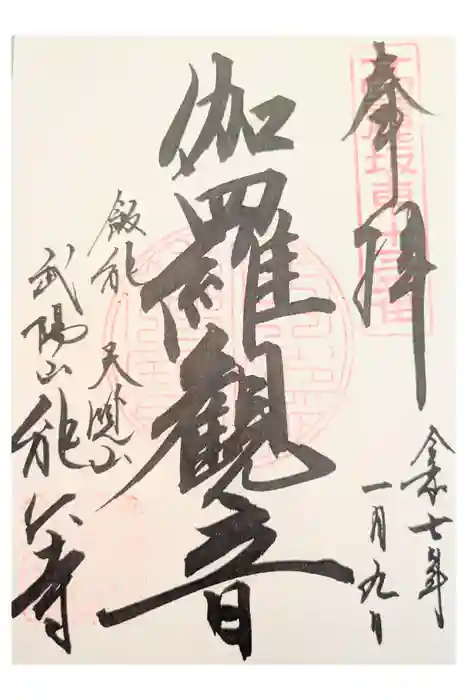 奉拝
令和七年
一月九日
伽羅觀音
飯能
天覧山
武陽山能仁寺